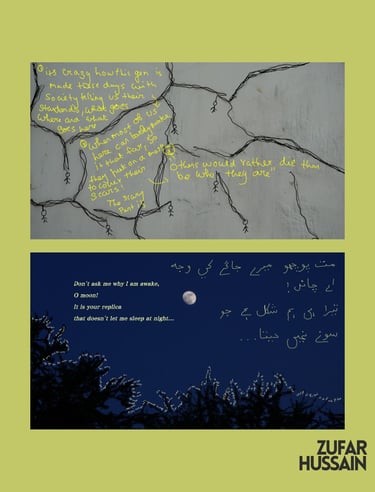 ① its crazy how this gen is
made these days with
Society telling us their
Standards, what goes
where and what
goes here
② when most of us
here can barely make
is that far, so
they put on a mask
to cover their
Scars!
The scary
Part is
others would rather die than
be who they are"
مت پوچھو میرے جاگنے کی وجہ
اے چاند!
تیرا ہی ہم شکل ہے جو
سونے نہیں دیتا...
Don't ask me why I am awake,
O moon!
It is your replica
that doesn't let me sleep at night...
ZUFAR
HUSSAIN